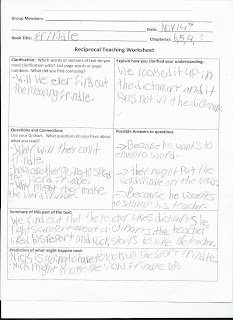 Group Members:
Date: Nov 14th
Book Title: Frindle Chapter(s)
Reciprocal Teaching Worksheet
Clarification: Which words or sections of text do you
need clarification with? List page words or page
numbers. What did you find confusing?
-Will we ever find out
the meaning frindle.
Explain how you clarified your understanding:
We looked it up in
the dictionary and it
was not in the dictionare
Questions and Connections
Use your Q-chart. What questions do you have about
what you read?
-Why will they call it
frindle.
-how are they going to spell
-Why might they make
the word frindle.
Possible Answers to questions
->Because he wants to
invent a word.
-> they might put the
word frindle on the
->Because he wantes
to his teacher
Summary of this part of the text:
We find out that the teacher likes dictionarys he
a report about dictionarys the teacher
liked his report and Nick starts to like the teacher
Prediction of what might happen next:
Nick is going to have to look up the word Frindle.
Nick might make the word frindle up.